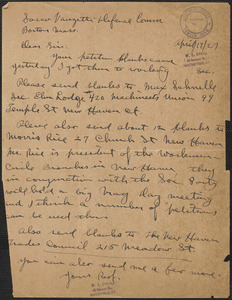 Sacco Vanzetti Defense Comm
Boston Mass.
April 17/27
Dear Sir:
Your petition blanks came
yesterday I got them to working
Please send blanks to Max
Sec. Elm Lodge 420 Machinists Union 99
Temple St New Haven Ct.
Please also send about 12 blanks to
Morris Rice 27 Church St New Haven
Mr Rice is president of the Workmens
Circle Branches in New Haven they
in conjunction with the Soc Party
will hold a big May day meeting
and I think a number of petitions
can be used there.
Also send blanks to the New Haven
Trades Council 215 Meadow St.
You can also send me a few more.
Yours